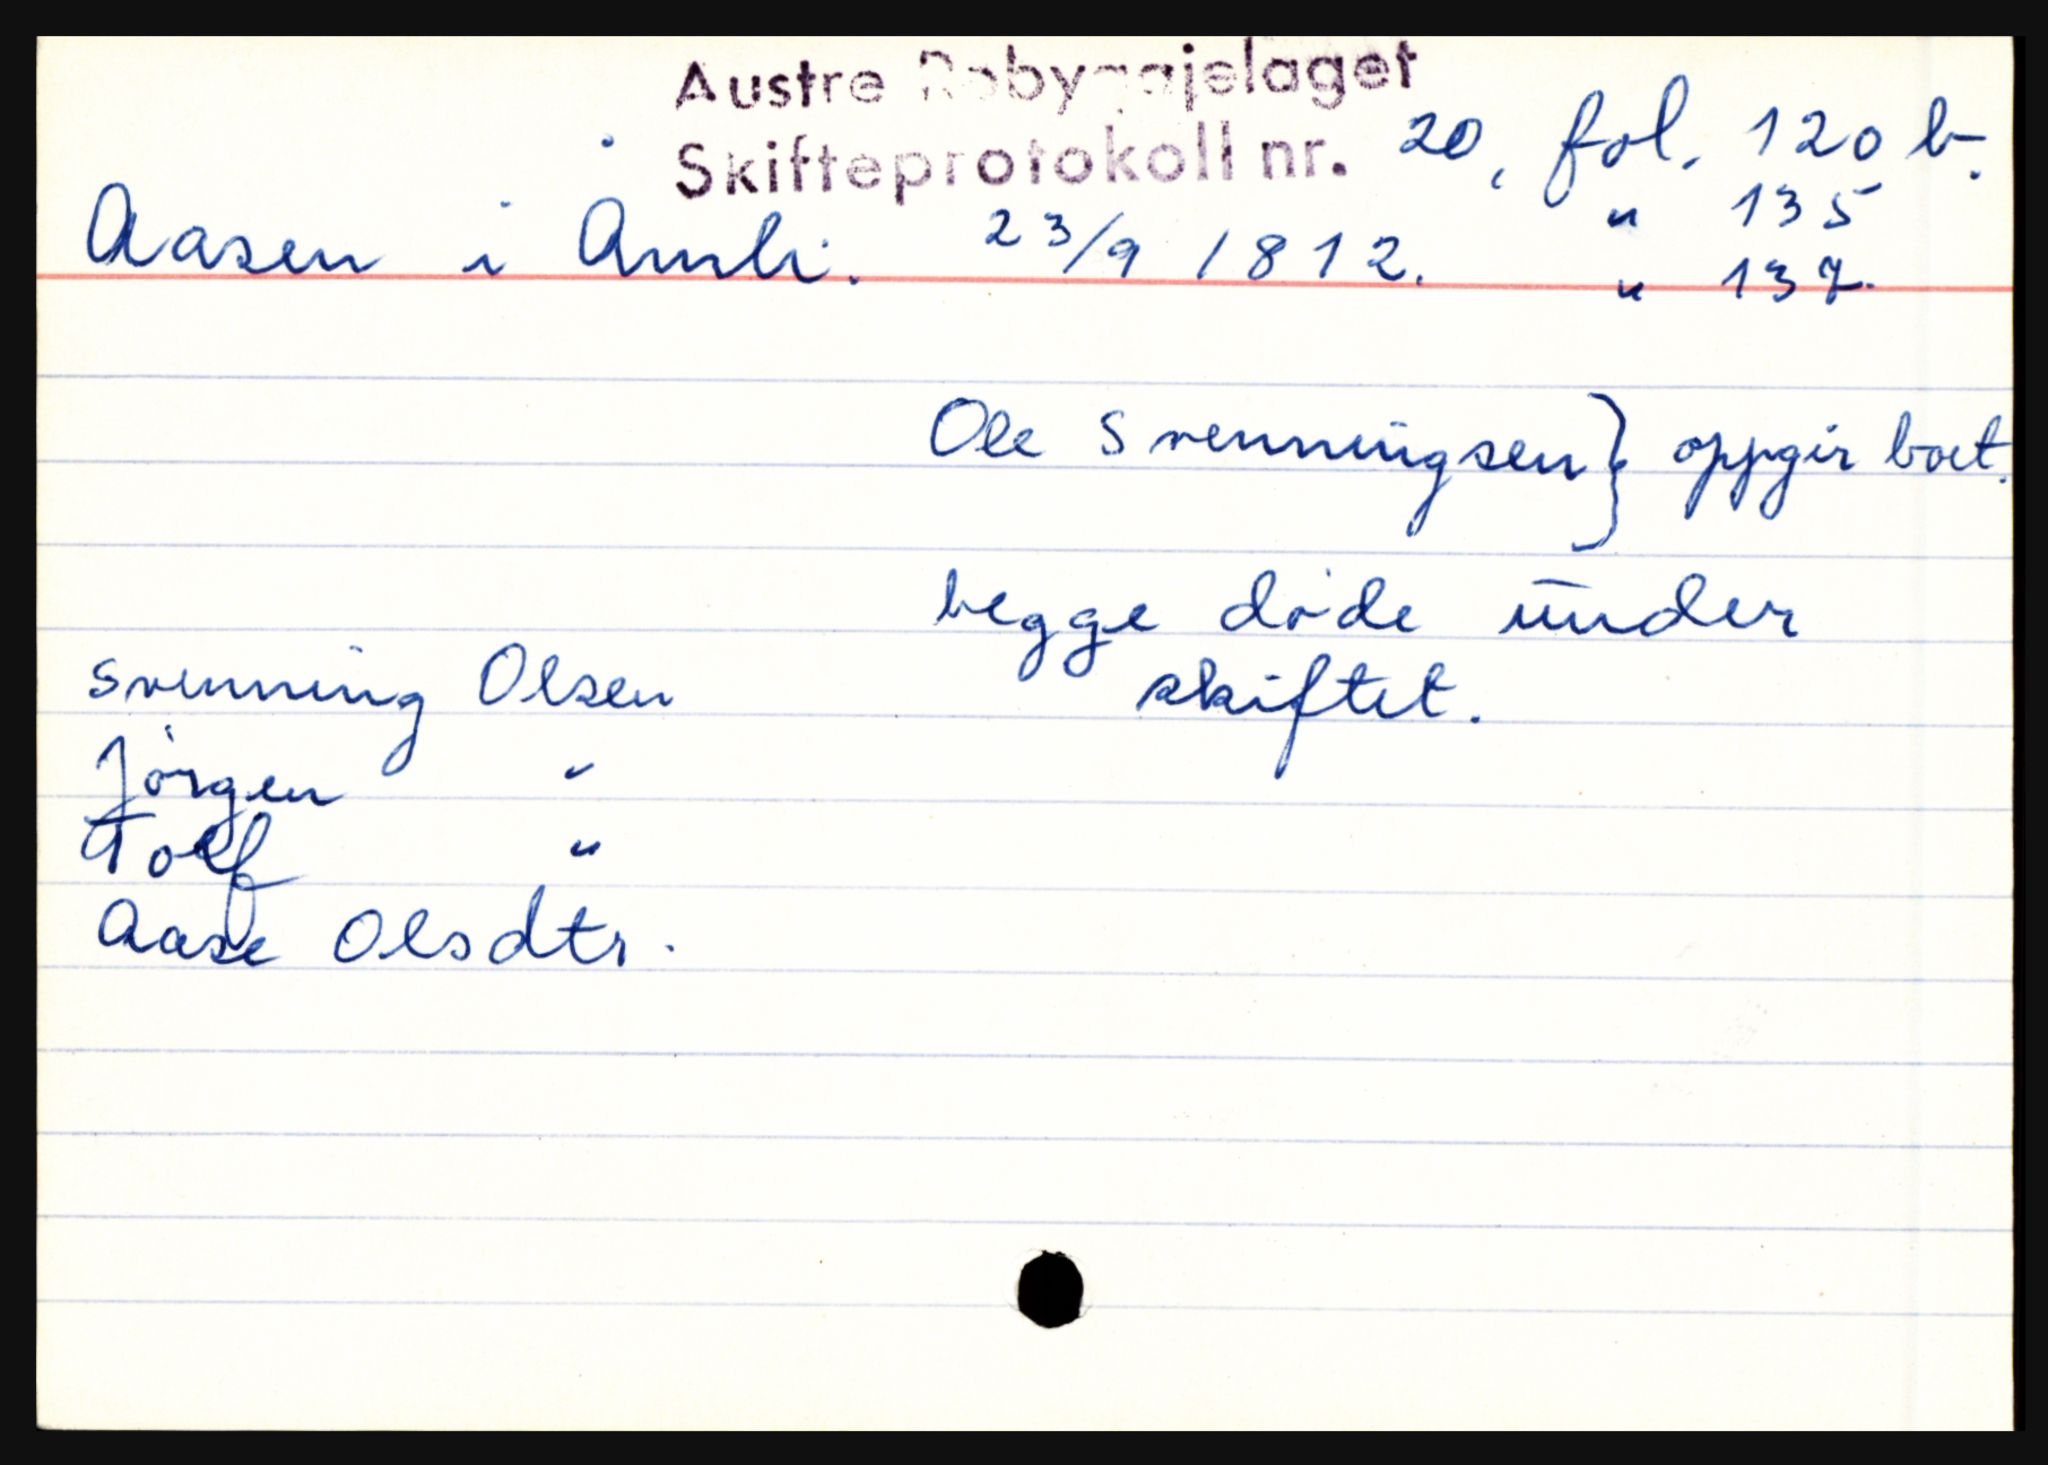 Austre Robyggjelaget
Skifteprotokoll nr. 20, fol. 120 b.
" 135
Aasen i Åmli. 23/9 1812.
" 137.
Ole Svenningsen } oppgir boet.
begge døde under
Svenning Olsen skiftet.
Jørgen "
Tolf "
Aase Olsdtr.